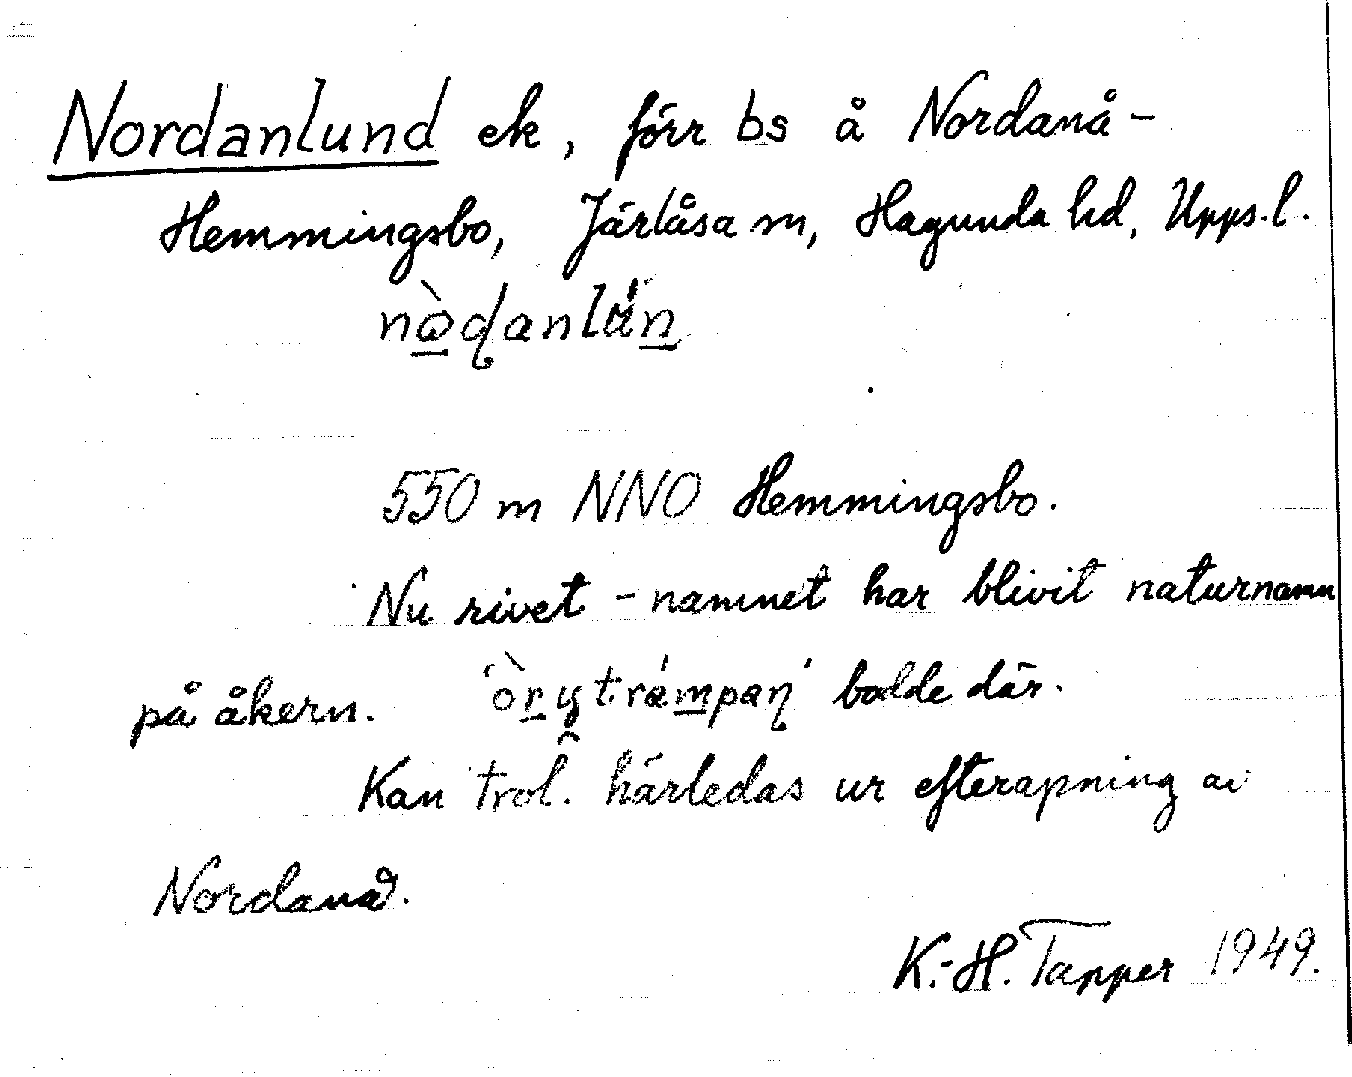 Nordanlund ek, förr bs å Nordanå-
Hemmingsbo, Järlåsa sn, Hagunda hd, Upps.l.
550 m NNO Hemmingsbo.
Nu rivet - namnet har blivit naturnamn
på åkern. bodde där.
Kan trol. härledas ur efterapning av
Nordanå.
K.-H. Tapper 1949.